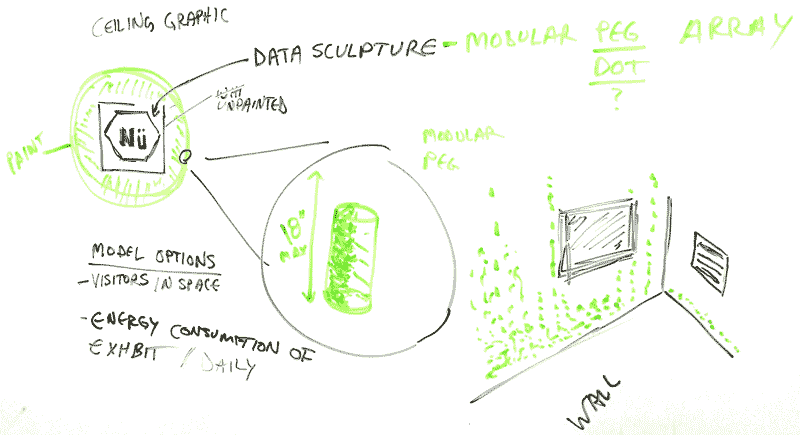 CEILING GRAPHIC
DATA SCULPTURE - MODULAR PEG ARRAY
DOT
?
UNPAINTED
Nü
PAINT
MODULAR
PEG
18"
MAX
MODEL OPTIONS
- VISITORS IN SPACE
- ENERGY CONSUMTION OF
EXHBIT / DAILY
WALL